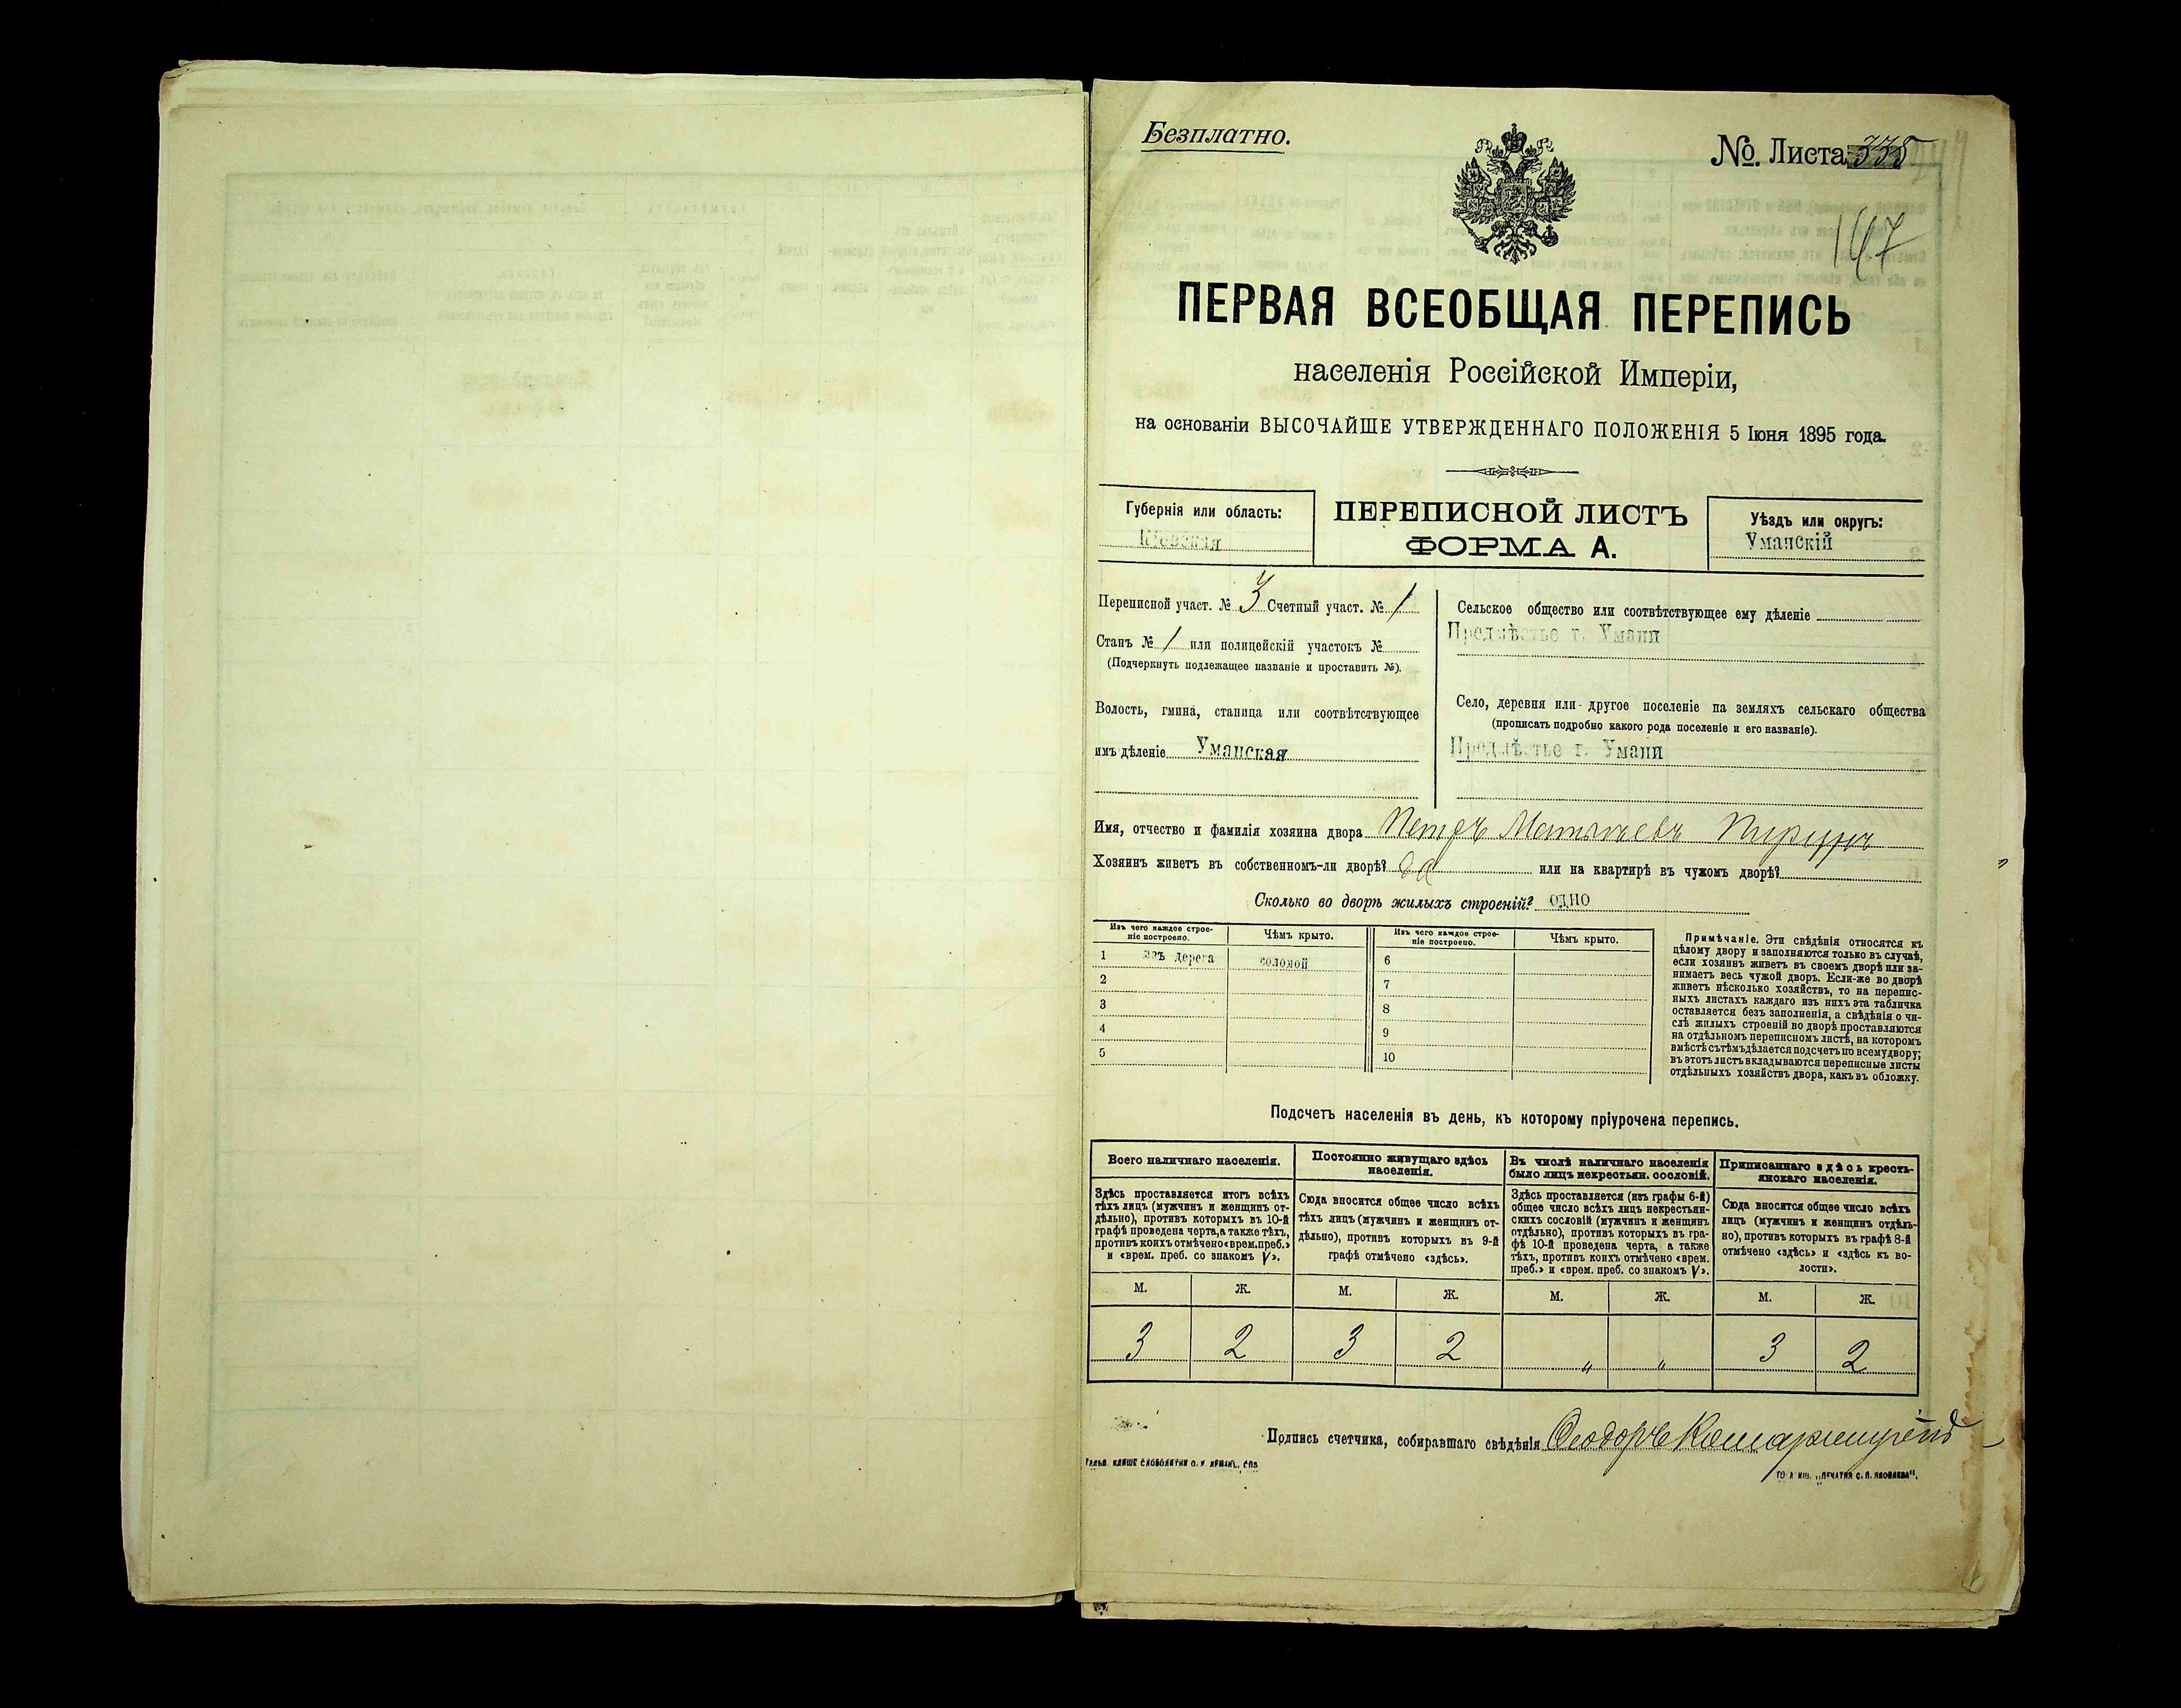 Безплатно.
№. Листа 335
147
ПЕРВАЯ ВСЕОБЩАЯ ПЕРЕПИСЬ
населенія Россійской Имперіи,
на основаніи ВЫСОЧАЙШЕ УТВЕРЖДЕННАГО ПОЛОЖЕНІЯ 5 Іюня 1895 года.
Губернія или область:
Кіевская
ПЕРЕПИСНОЙ ЛИСТЪ
ФОРМА А.
Уѣздъ или округъ:
Уманскій
Переписной участ. № 3 Счетный участ. № 1
Станъ № 1 или полицейскій участокъ №
(Подчеркнуть подлежащее названіе и проставить №).
Волость, гмина, станица или соотвѣтствующее
имъ дѣленіе Уманская
Сельское общество или соотвѣтствующее ему дѣленіе
Предмѣстье г. Умани
Село, деревня или другое поселеніе на земляхъ сельскаго общества
(прописать подробно какого рода поселеніе и его названіе).
Предмѣстье г. Умани
Имя, отчество и фамилія хозяина двора Петръ Матвѣевъ
Хозяинъ живетъ въ собственномъ-ли дворѣ? да или на квартирѣ въ чужомъ дворѣ?
Сколько во дворѣ жилыхъ строеній? одно
Изъ чего каждое строе-
ніе построено.
Чѣмъ крыто.
Изъ чего каждое строе-
ніе построено.
Чѣмъ крыто.
1 изъ дерева соломой 6
2 7
3 8
4 9
5 10
Примѣчаніе. Эти свѣдѣнія относятся къ
цѣлому двору и заполняются только въ случаѣ,
если хозяинъ живетъ въ своемъ дворѣ или за-
нимаетъ весь чужой дворъ. Если-же во дворѣ
живетъ нѣсколько хозяйствъ, то на перепис-
ныхъ листахъ каждаго изъ нихъ эта табличка
оставляется безъ заполненія, а свѣдѣнія о чи-
слѣ жилыхъ строеній во дворѣ проставляются
на отдѣльномъ переписномъ листѣ, на которомъ
вмѣстѣ съ тѣмъ дѣлается подсчетъ по всему двору;
въ этотъ листъ вкладываются переписные листы
отдѣльныхъ хозяйствъ двора, какъ въ обложку.
Подсчетъ населенія въ день, къ которому пріурочена перепись.
Всего наличнаго населенія.
Здѣсь проставляется итогъ всѣхъ
тѣхъ лицъ (мужчинъ и женщинъ от-
дѣльно), противъ которыхъ въ 10-й
графѣ проведена черта, а также тѣхъ,
противъ коихъ отмѣчено «врем. преб.»
и «врем. преб. со знакомъ V».
Постоянно живущаго здѣсь
населенія.
Сюда вносится общее число всѣхъ
тѣхъ лицъ (мужчинъ и женщинъ от-
дѣльно), противъ которыхъ въ 9-й
графѣ отмѣчено «здѣсь».
Въ числѣ наличнаго населенія
было лицъ некрестьян. сословій.
Здѣсь проставляется (изъ графы 6-й)
общее число всѣхъ лицъ некрестьян-
скихъ сословій (мужчинъ и женщинъ
отдѣльно), противъ которыхъ въ гра-
фѣ 10-й проведена черта, а также
тѣхъ, противъ коихъ отмѣчено «врем.
преб.» и «врем. преб. со знакомъ V».
Приписаннаго здѣсь кресть-
янскаго населенія.
Сюда вносится общее число всѣхъ
лицъ (мужчинъ и женщинъ отдѣль-
но), противъ которыхъ въ графѣ 8-й
отмѣчено «здѣсь» и «здѣсь къ во-
лости».
М. Ж. М. Ж. М. Ж. М. Ж.
3 2 3 2 „ „ 3 2
Подпись счетчика, собиравшаго свѣдѣнія Ѳеодоръ